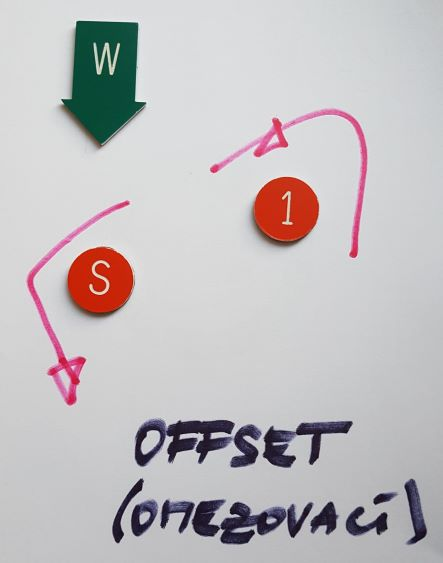 W
1
S
OFFSET
(OMEZOVACÍ)